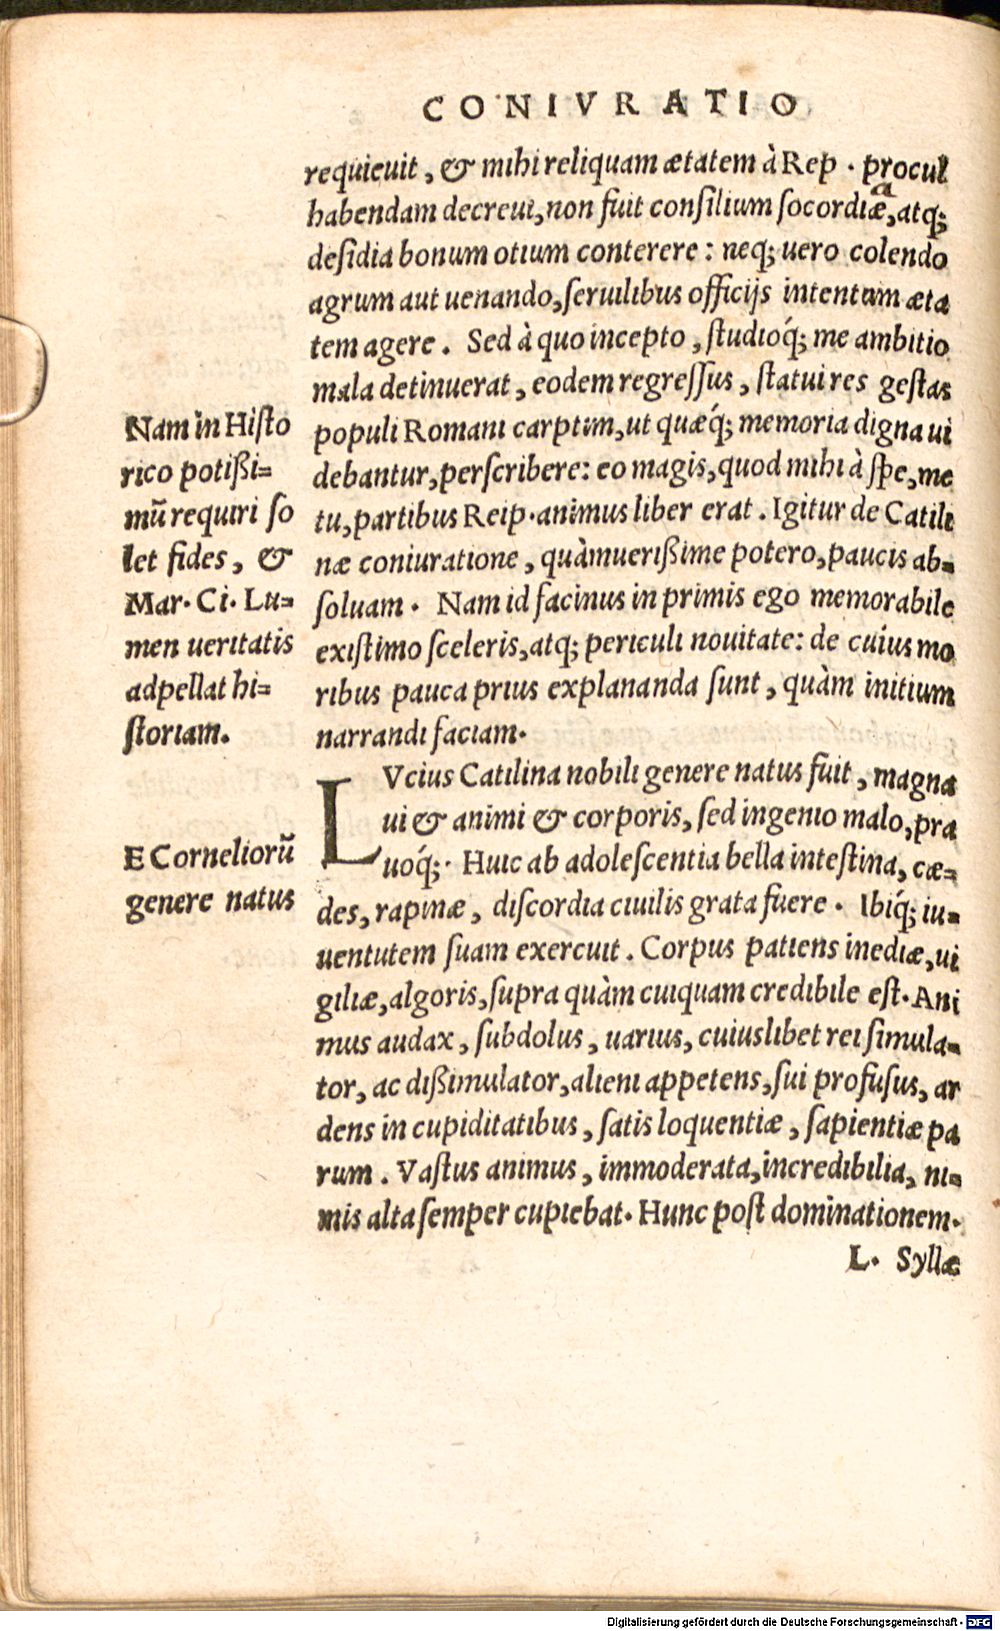 CONIVRATIO
requieuit, & mihi reliquam ætatem à Rep. procul
habendam decreui, non fuit consilium socordiæ, atq;
a
desidia bonum otium conterere: neq; uero colendo
agrum aut uenando, seruilibus officijs intentum æta
tem agere. Sed à quo incepto, studioq́; me ambitio
mala detinuerat, eodem regressus, statui res gestas
populi Romani carptim, ut quæq́; memoria digna ui
debantur, perscribere: eo magis, quod mihi à spe, me
tu, partibus Reip. animus liber erat. Igitur de Catili
næ coniuratione, quàm uerißime potero, paucis ab=
soluam. Nam id facinus in primis ego memorabile
existimo sceleris, atq; periculi nouitate: de cuius mo
ribus pauca prius explananda sunt, quàm initium
narrandi faciam.
LVcius Catilina nobili genere natus fuit, magna
ui & animi & corporis, sed ingenio malo, pra
uoq́;. Huic ab adolescentia bella intestina, cæ=
des, rapinæ, discordia ciuilis grata fuere. Ibiq́; iu=
uentutem suam exercuit. Corpus patiens inediæ, ui
giliæ, algoris, supra quàm cuiquam credibile est. Ani
mus audax, subdolus, uarius, cuiuslibet rei simula=
tor, ac dißimulator, alieni appetens, sui profusus, ar
dens in cupiditatibus, satis loquentiæ, sapientiæ pa
rum. Vastus animus, immoderata, incredibilia, ni=
mis alta semper cupiebat. Hunc post dominationem.
L. Syllæ
Nam in Histo
rico potißi=
mū requiri so
let fides, &
Mar. Ci. Lu=
men ueritatis
adpellat hi=
storiam.
E Corneliorū
genere natus
Digitalisierung gefördert durch die Deutsche Forschungsgemeinschaft - DFG